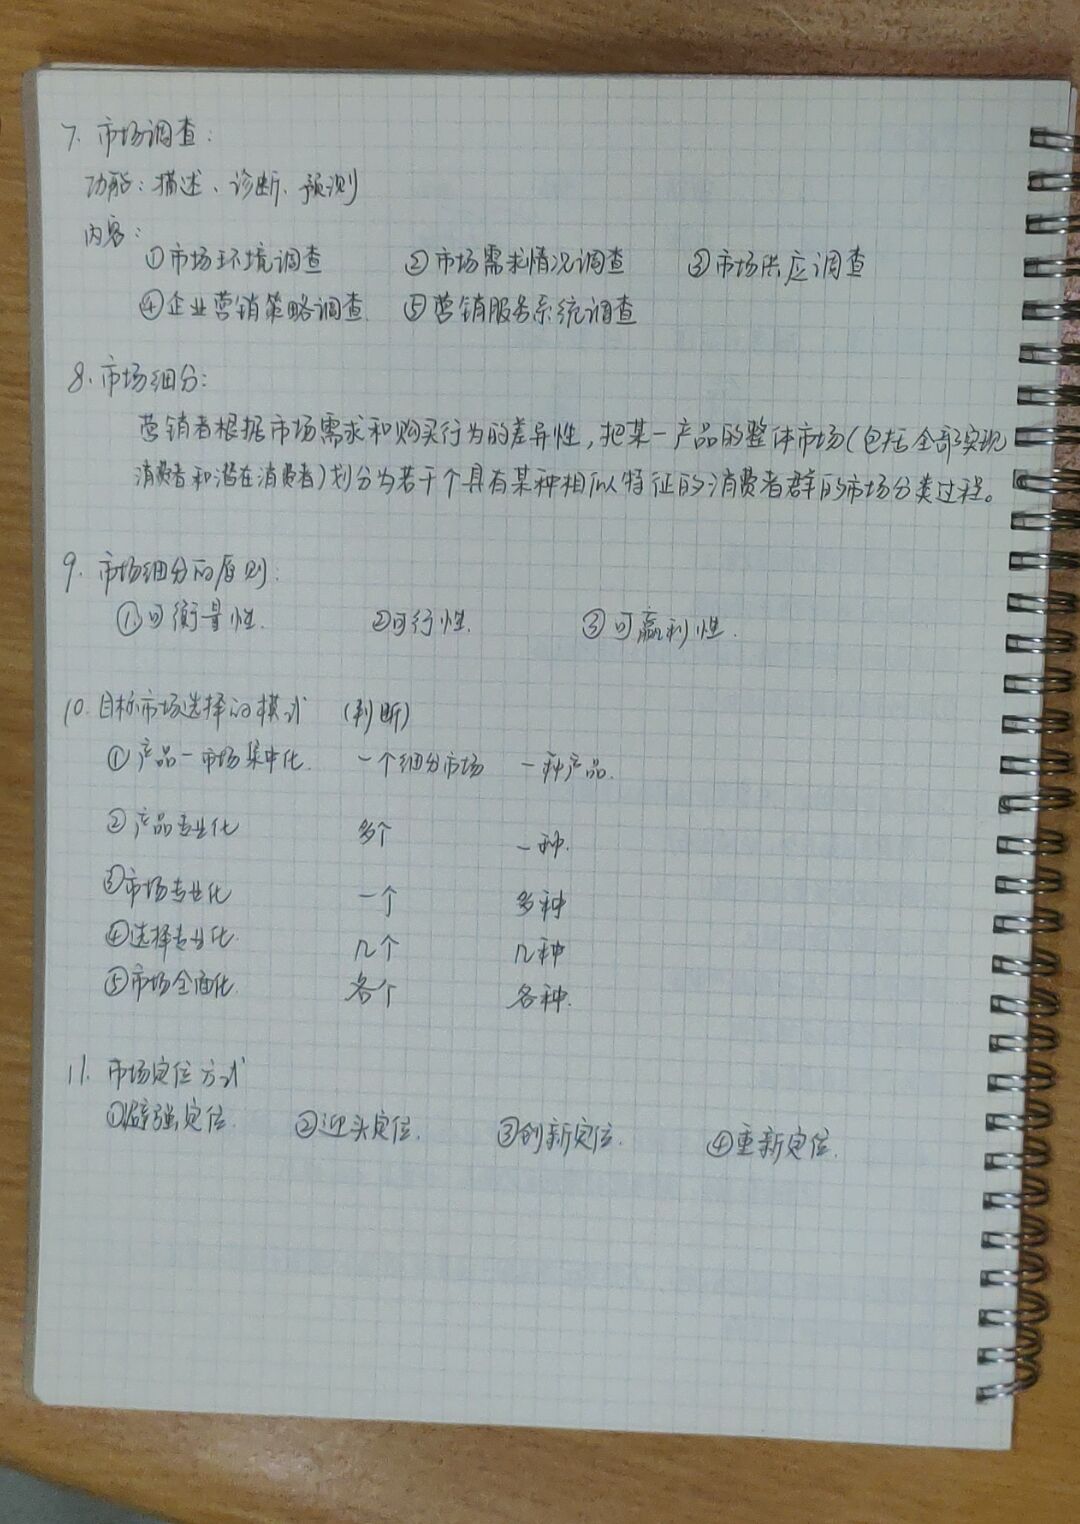 7. 市场调查:
功能: 描述、诊断、预测
内容:
①市场环境调查 ②市场需求情况调查 ③市场供应调查
④企业营销策略调查. ⑤营销服务系统调查
8. 市场细分:
营销者根据市场需求和购买行为的差异性,把某一产品的整体市场(包括全部实现
消费者和潜在消费者)划分为若干个具有某种相似特征的消费者群的市场分类过程。
9. 市场细分的原则:
①可衡量性. ②可行性. ③可赢利性.
10. 目标市场选择的模式 (判断)
①产品—市场集中化. 一个细分市场 一种产品.
②产品专业化 多个 一种.
③市场专业化 一个 多种
④选择专业化. 几个 几种
⑤市场全面化. 各个 各种.
11. 市场定位方式
①避强定位. ②迎头定位. ③创新定位. ④重新定位.